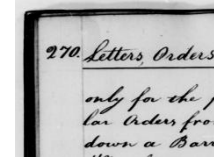 270. Letters, Orders
only for the
lar Orders fro
down a Barr